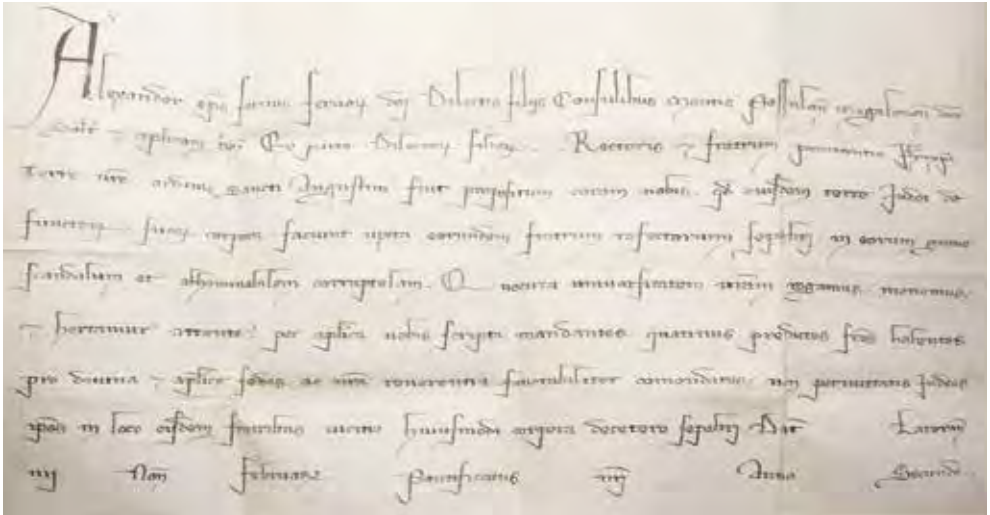 Alexander eps servus servoꝝ dei Dilectis filijs Consulibus montis Magalonen dioc
Salt ⁊ aplicam ben Ex parte Dilectoꝝ filioꝝ Rectoris ⁊ fratrum
Terre ordinis sancti Augustini fuit propositum coram nobis qd eiusdem terre Judei de
functoꝝ suoꝝ corpora faciunt iuxta eorundem fratrum refectorium sepeliri in eorum
scandalum et abhominabilem corruptelam Q universitatem vram rogamus monemus
⁊ hortamur attente per aplica vobis scripta mandantes quatinus predictos fres habentes
pro divina ⁊ aplice sedis ac nra reverentia favorabiliter comendatos non permittatis Judeos
ipsos in loco eisdem fratribus vicino huiusmodi corpora decetero sepeliri Dat Lateran
iiij Non Februarii Pontificatus nri Anno Secundo